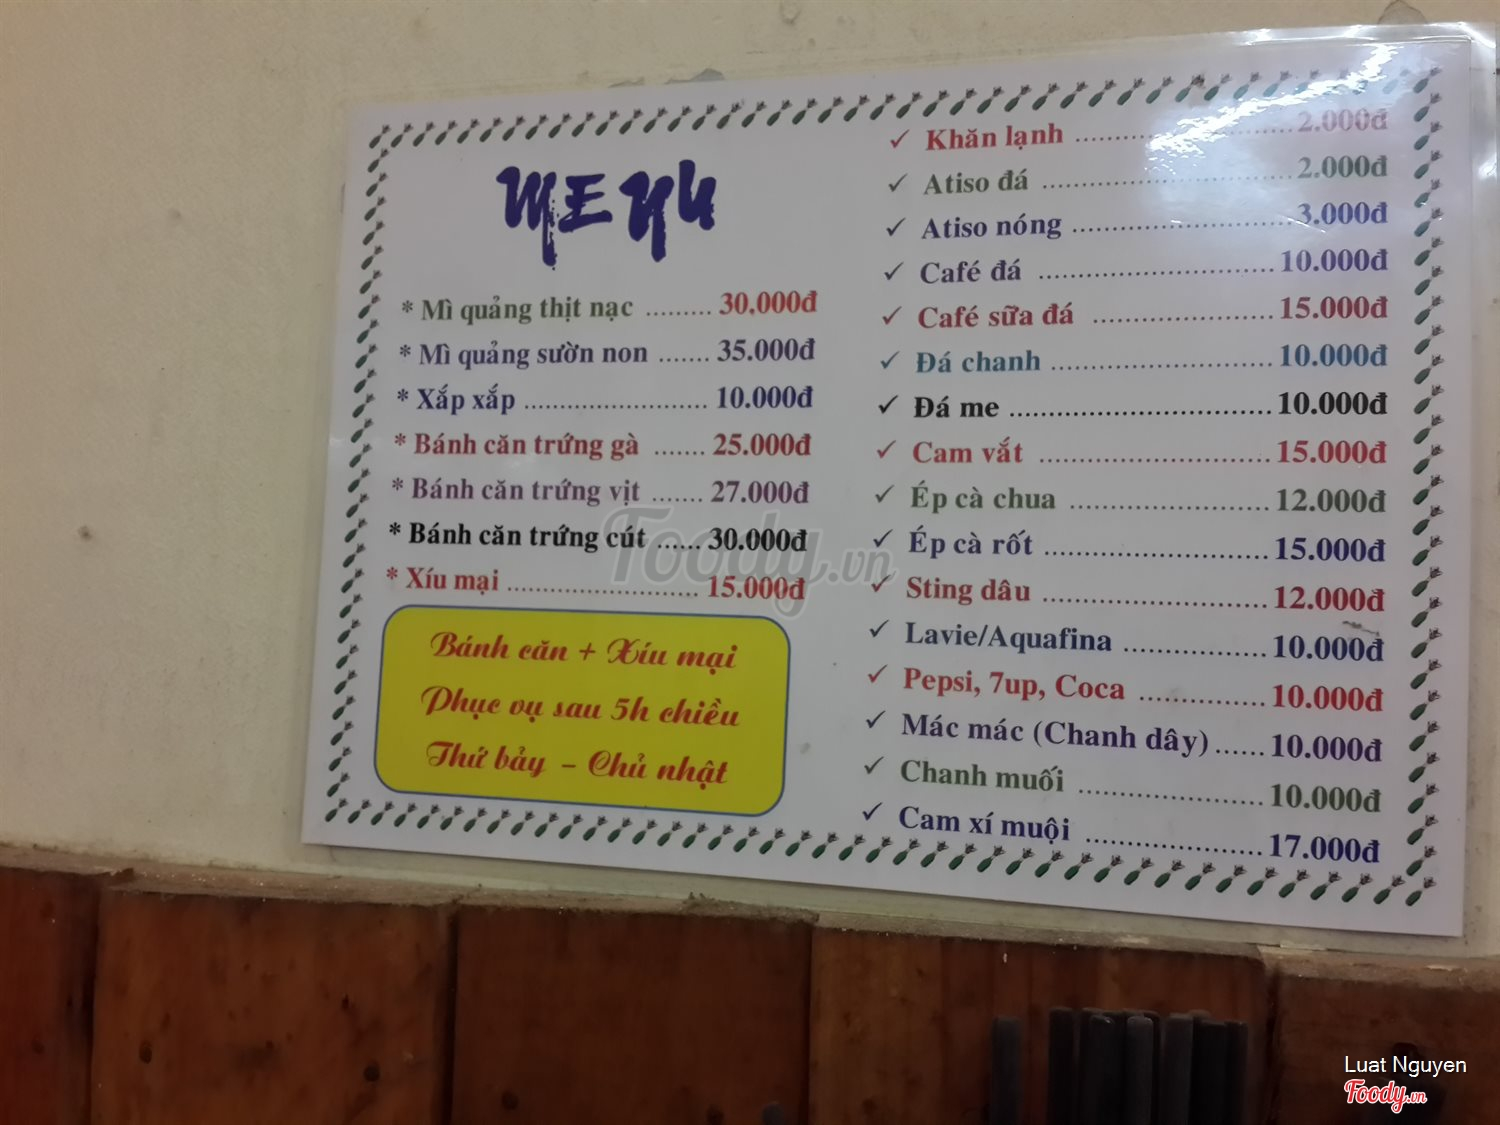 MENU
* Mì quảng thịt nạc ......... 30.000đ
* Mì quảng sườn non ....... 35.000đ
* Xắp xắp .......................... 10.000đ
* Bánh căn trứng gà ....... 25.000đ
* Bánh căn trứng vịt ....... 27.000đ
* Bánh căn trứng cút ...... 30.000đ
* Xíu mại ........................... 15.000đ
Bánh căn + Xíu mại
Phục vụ sau 5h chiều
Thứ bảy - Chủ nhật
✓ Khăn lạnh ............................... 2.000đ
✓ Atiso đá ................................... 2.000đ
✓ Atiso nóng ............................... 3.000đ
✓ Café đá ................................. 10.000đ
✓ Café sữa đá ......................... 15.000đ
✓ Đá chanh ............................... 10.000đ
✓ Đá me ..................................... 10.000đ
✓ Cam vắt ................................. 15.000đ
✓ Ép cà chua ............................ 12.000đ
✓ Ép cà rốt ............................... 15.000đ
✓ Sting dâu ............................... 12.000đ
✓ Lavie/Aquafina .................... 10.000đ
✓ Pepsi, 7up, Coca .................. 10.000đ
✓ Mác mác (Chanh dây) ....... 10.000đ
✓ Chanh muối .......................... 10.000đ
✓ Cam xí muội ......................... 17.000đ
Foody.vn
Luat Nguyen
Foody.vn